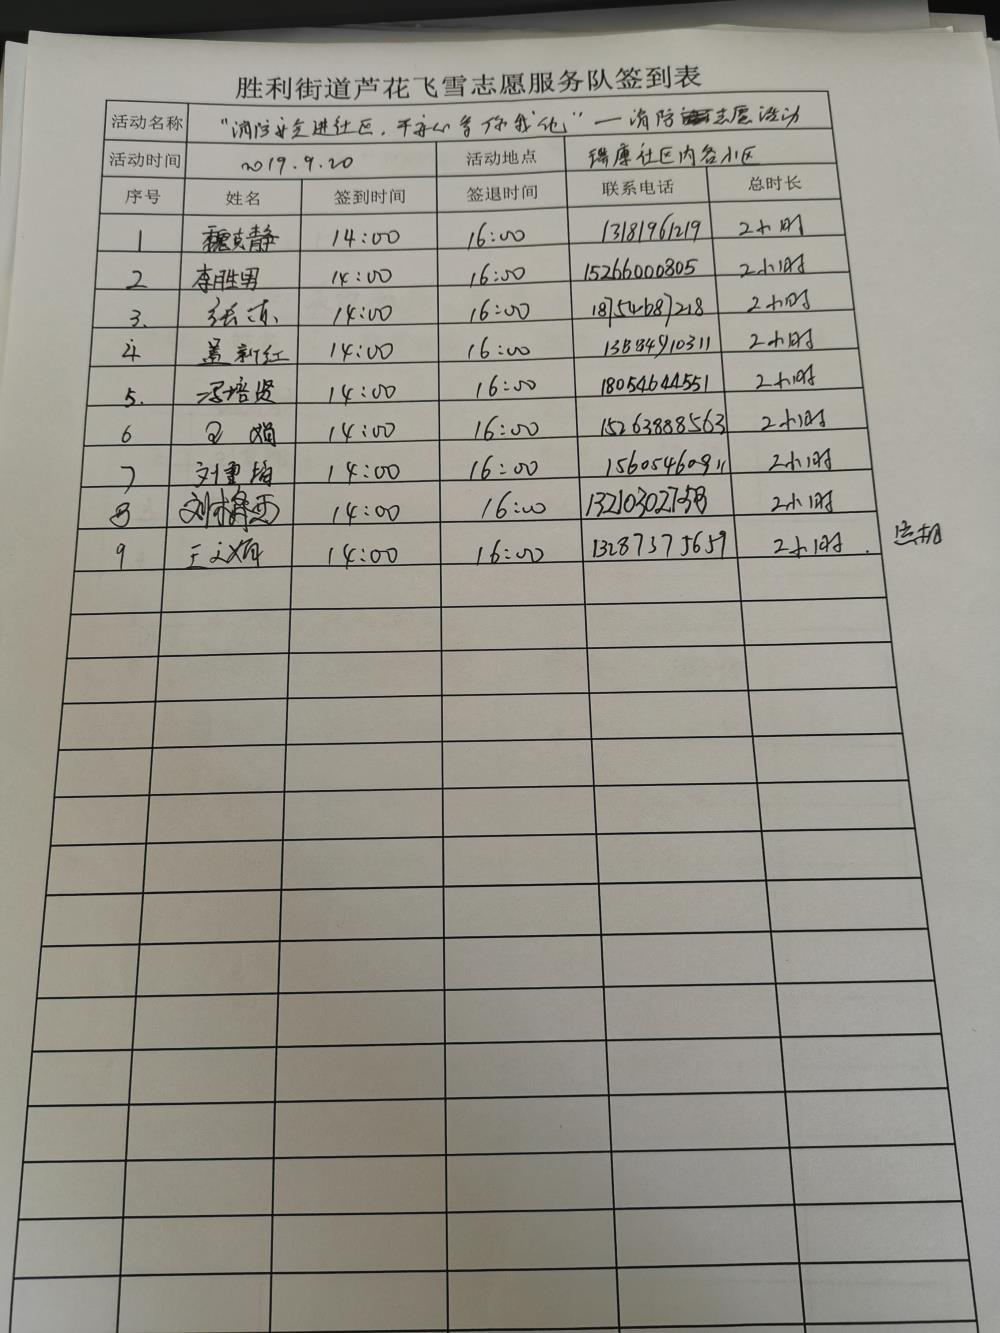 胜利街道芦花飞雪志愿服务队签到表
活动名称 "消防安全进社区，平安心系你我他"—消防志愿活动
活动时间 2019.9.20 活动地点 瑞康社区内各小区
序号 姓名 签到时间 签退时间 联系电话 总时长
1 魏真静 14:00 16:00 13181961219 2小时
2 李胜男 14:00 16:00 15266000305 2小时
3. 张东 14:00 16:00 18754687218 2小时
4 盖新红 14:00 16:00 13884910311 2小时
5. 冯培贤 14:00 16:00 18054644551 2小时
6 王娟 14:00 16:00 15263888563 2小时
7 刘重梅 14:00 16:00 15605460911 2小时
8 刘 14:00 16:00 2小时
9 王文娟 14:00 16:00 13287375659 2小时.